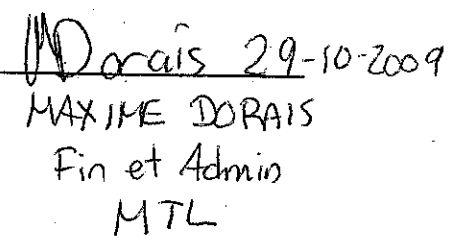 MDorais 29-10-2009
MAXIME DORAIS
Fin et Admin
MTL